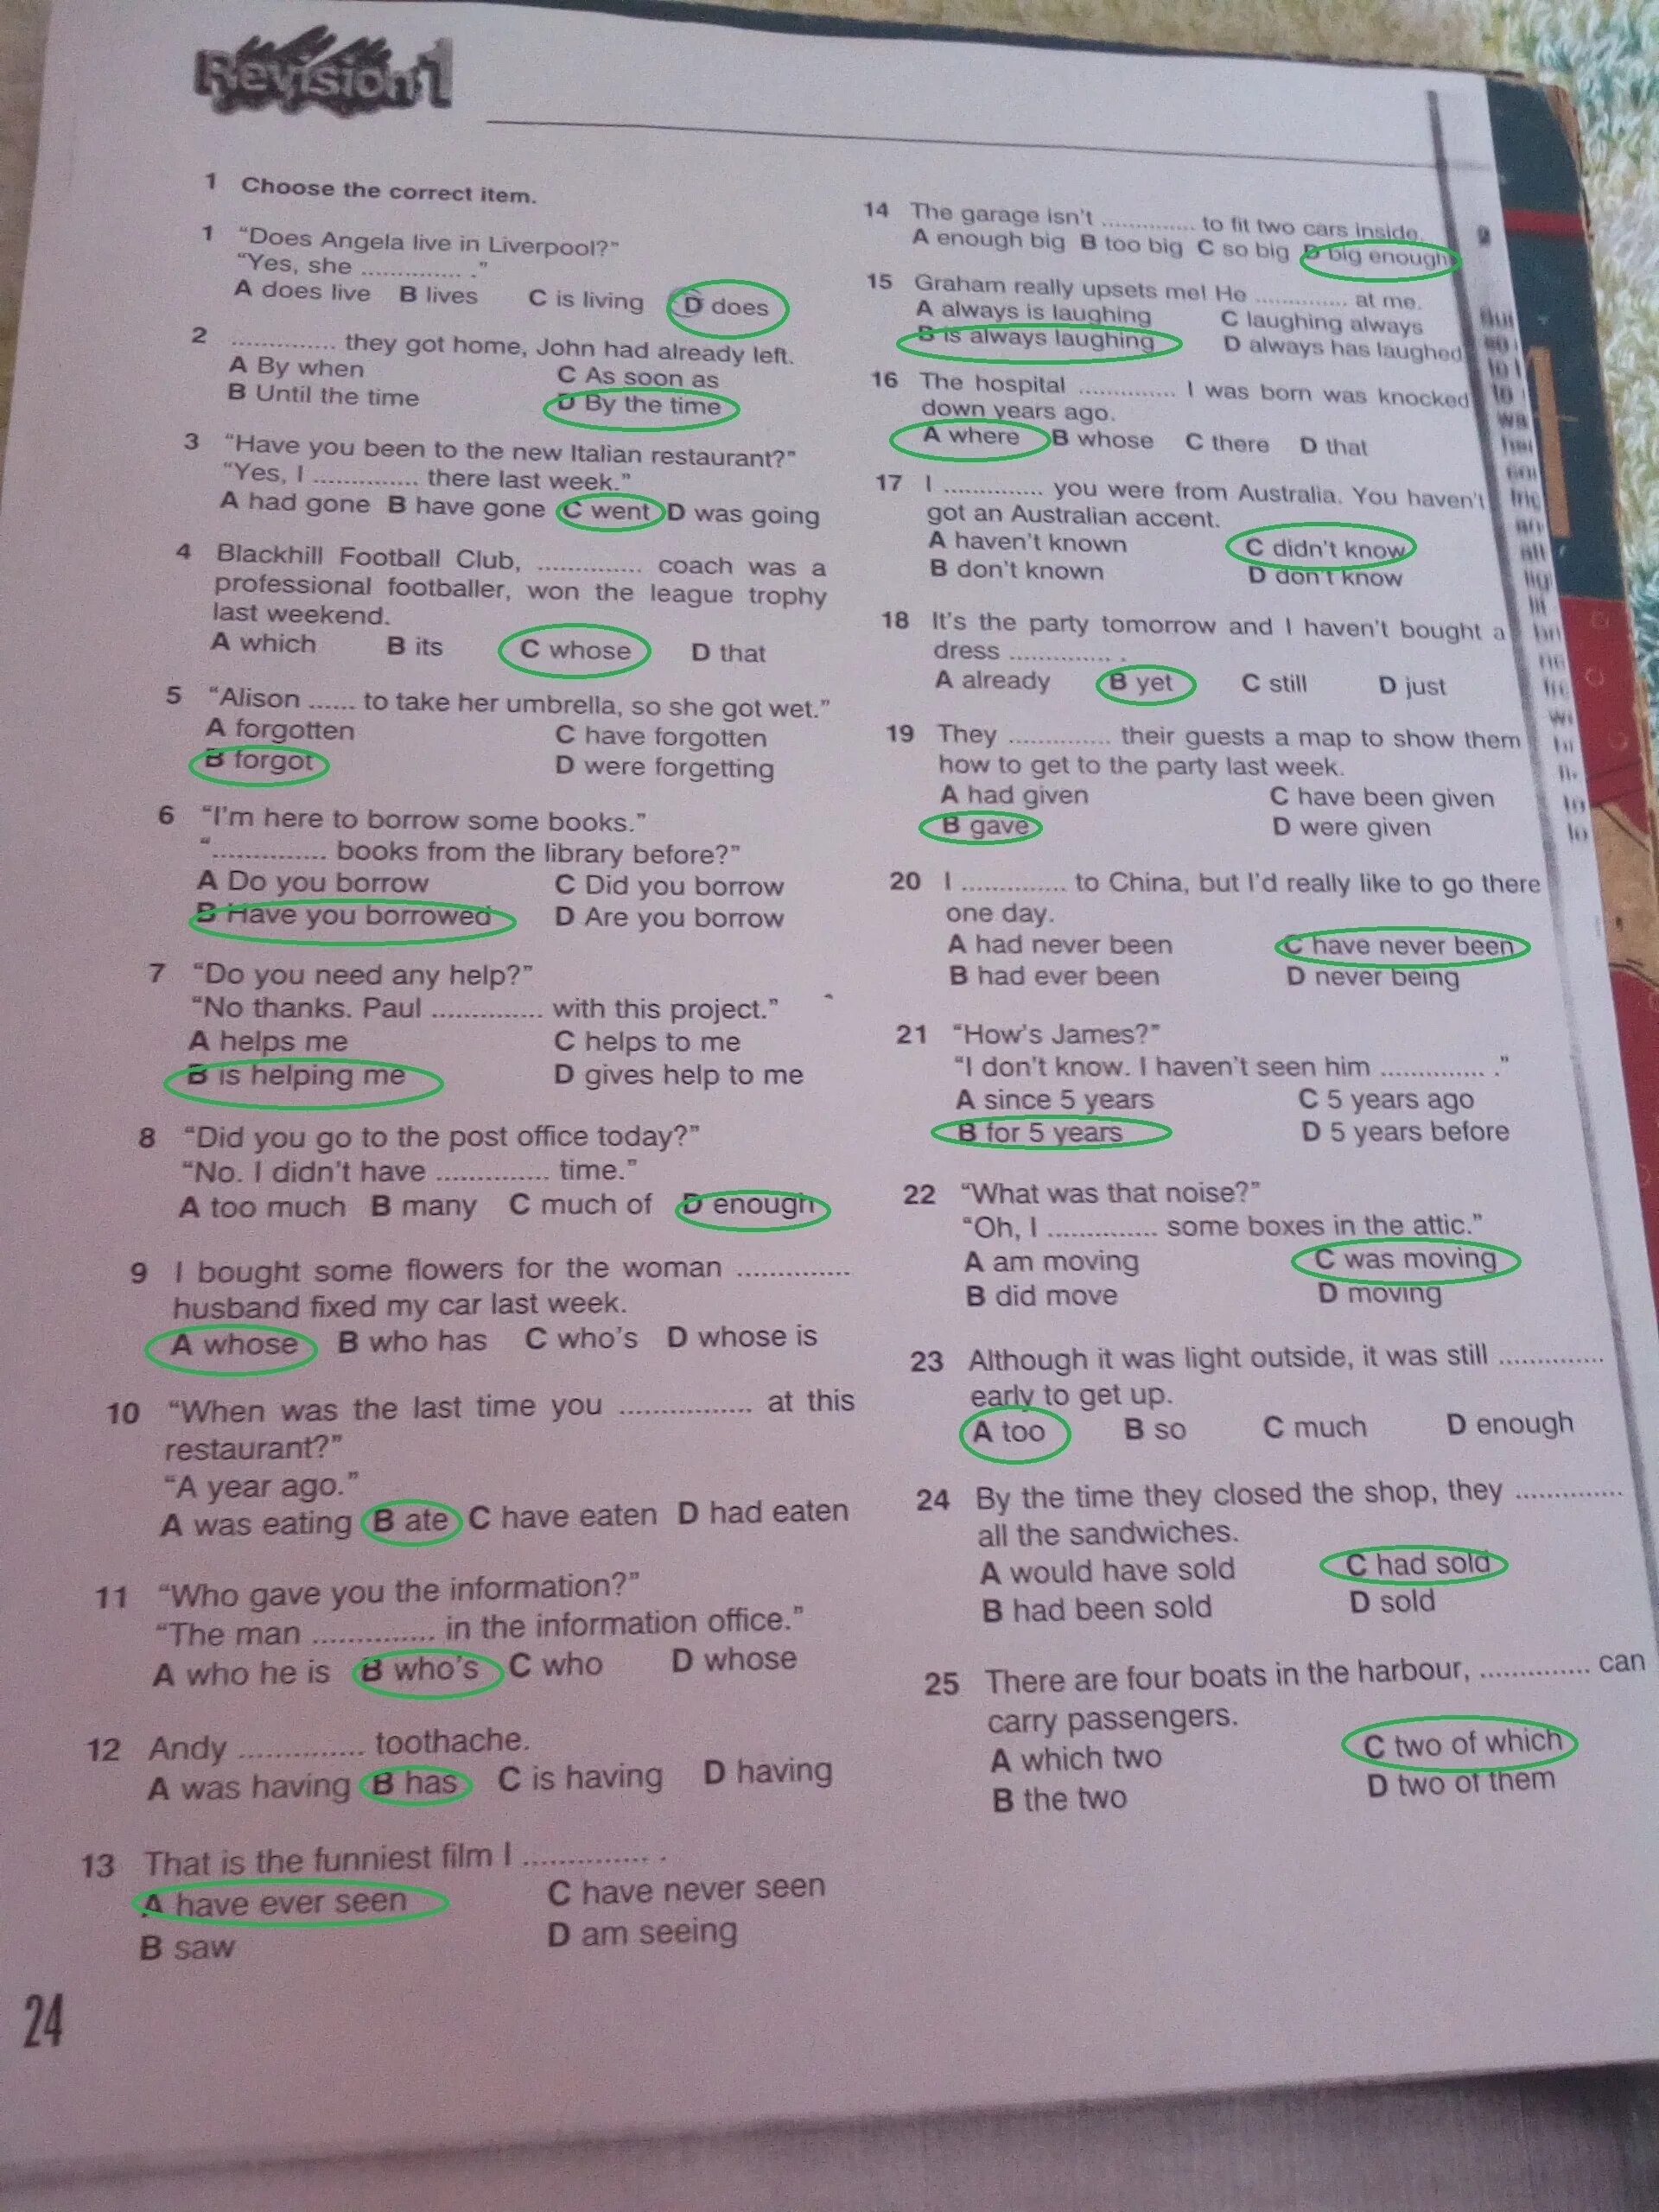 Revision 1
1 Choose the correct item.
1 "Does Angela live in Liverpool?"
"Yes, she .............. ."
A does live B lives C is living D does
2 .............. they got home, John had already left.
A By when C As soon as
B Until the time D By the time
3 "Have you been to the new Italian restaurant?"
"Yes, I .............. there last week."
A had gone B have gone C went D was going
4 Blackhill Football Club, .............. coach was a
professional footballer, won the league trophy
last weekend.
A which B its C whose D that
5 "Alison ...... to take her umbrella, so she got wet."
A forgotten C have forgotten
B forgot D were forgetting
6 "I'm here to borrow some books."
".............. books from the library before?"
A Do you borrow C Did you borrow
B Have you borrowed D Are you borrow
7 "Do you need any help?"
"No thanks. Paul .............. with this project."
A helps me C helps to me
B is helping me D gives help to me
8 "Did you go to the post office today?"
"No. I didn't have .............. time."
A too much B many C much of D enough
9 I bought some flowers for the woman ..............
husband fixed my car last week.
A whose B who has C who's D whose is
10 "When was the last time you ................ at this
restaurant?"
"A year ago."
A was eating B ate C have eaten D had eaten
11 "Who gave you the information?"
"The man .............. in the information office."
A who he is B who's C who D whose
12 Andy .............. toothache.
A was having B has C is having D having
13 That is the funniest film I .............. .
A have ever seen C have never seen
B saw D am seeing
24
14 The garage isn't .............. to fit two cars inside.
A enough big B too big C so big D big enough
15 Graham really upsets me! He .............. at me.
A always is laughing C laughing always
B is always laughing D always has laughed
16 The hospital .............. I was born was knocked
down years ago.
A where B whose C there D that
17 I .............. you were from Australia. You haven't
got an Australian accent.
A haven't known C didn't know
B don't known D don't know
18 It's the party tomorrow and I haven't bought a
dress .............. .
A already B yet C still D just
19 They .............. their guests a map to show them
how to get to the party last week.
A had given C have been given
B gave D were given
20 I .............. to China, but I'd really like to go there
one day.
A had never been C have never been
B had ever been D never being
21 "How's James?"
"I don't know. I haven't seen him .............. ."
A since 5 years C 5 years ago
B for 5 years D 5 years before
22 "What was that noise?"
"Oh, I .............. some boxes in the attic."
A am moving C was moving
B did move D moving
23 Although it was light outside, it was still ..............
early to get up.
A too B so C much D enough
24 By the time they closed the shop, they ..............
all the sandwiches.
A would have sold C had sold
B had been sold D sold
25 There are four boats in the harbour, .............. can
carry passengers.
A which two C two of which
B the two D two of them